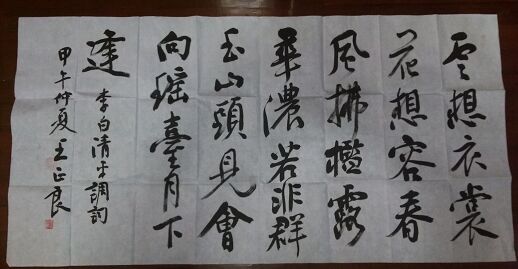 雲想衣裳
花想容春
風拂檻露
華濃若非群
玉山頭見會
向瑤臺月下
逢
李白清平調詞
甲午仲夏王正良